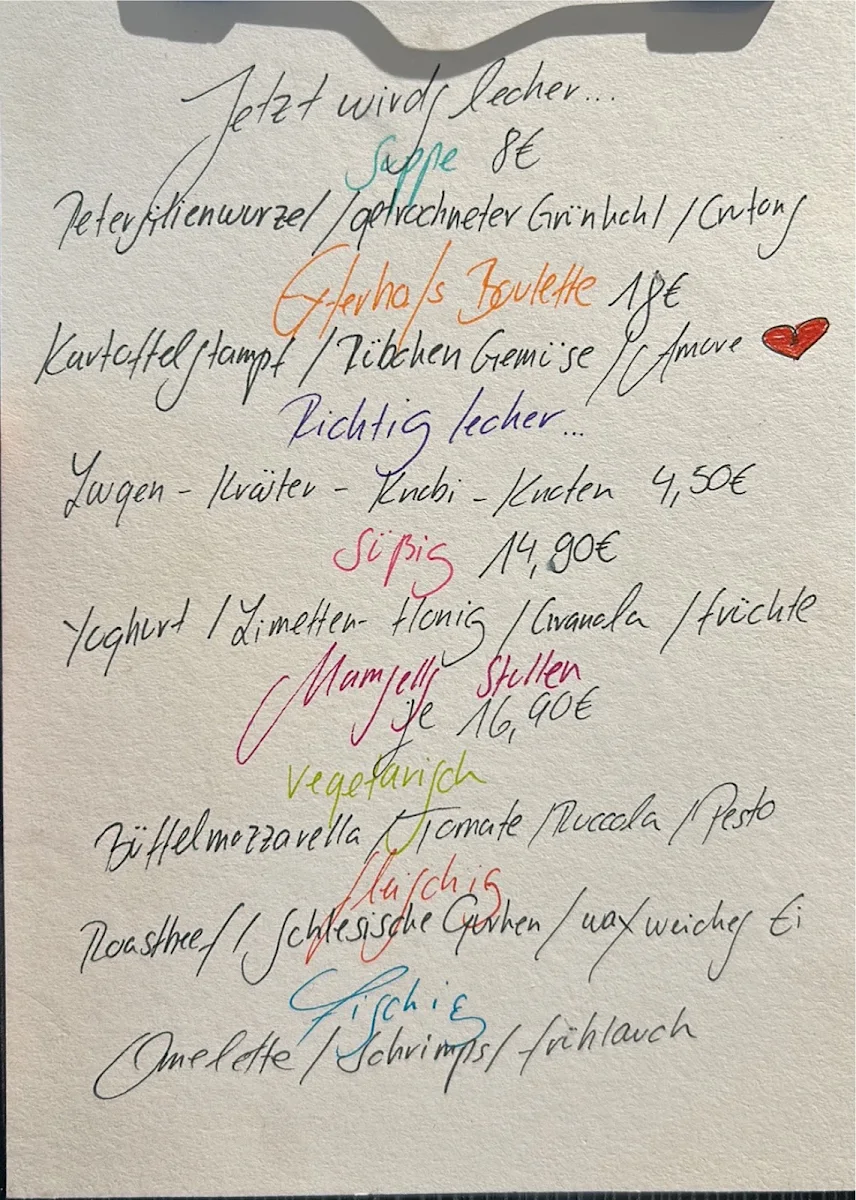 Jetzt wirds lecker...
Suppe 8€
Petersilienwurzel / getrockneter Grünkohl / Crutons
Exterhofs Boulette 18€
Kartoffelstampf / Rübchen Gemüse / Amore
Richtig lecker...
Laugen - Kräuter - Knobi - Knoten 4,50€
Süßig 14,90€
Yoghurt / Limetten- Honig / Granola / Früchte
Mamsells Stullen
je 16,90€
Vegetarisch
Büffelmozzarella / Tomate / Ruccola / Pesto
fleischig
Roastbeef / Schlesische Gurken / waxweiches Ei
Fischig
Omelette / Schrimps / Frühlauch